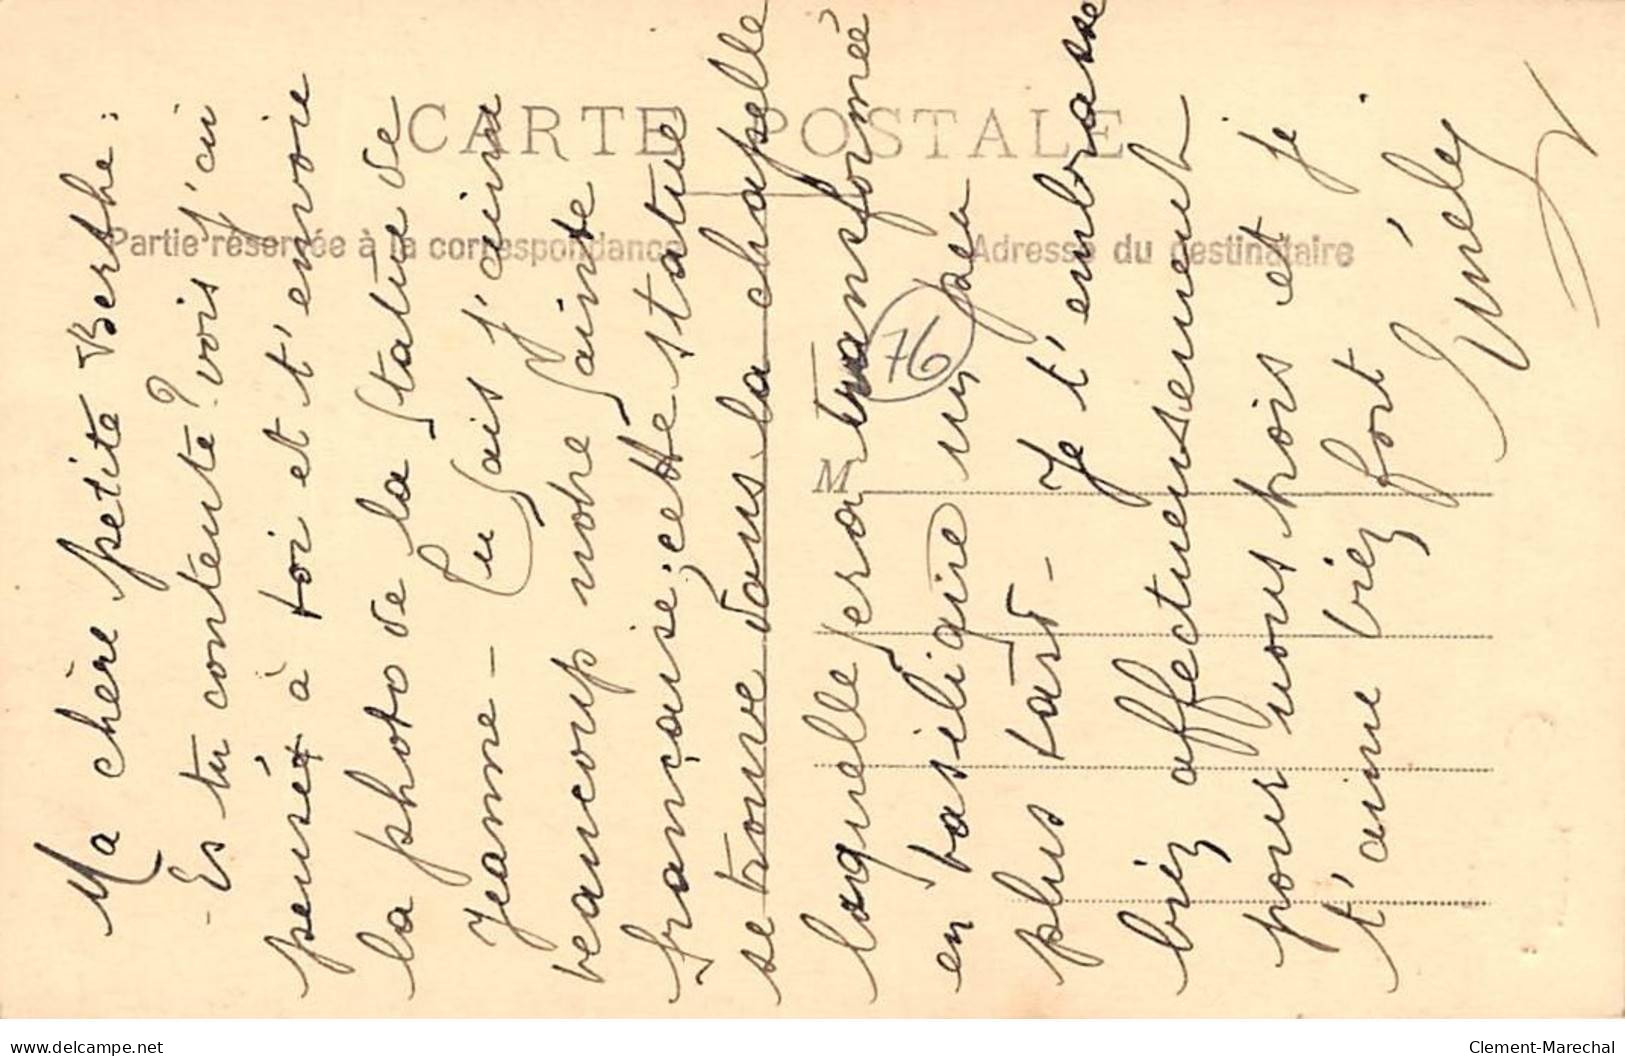 CARTE POSTALE
Partie réservée à la correspondance
Adresse du destinataire
M
76
Ma chère petite Berthe :
- Es tu contente? vois j'ai
pensée à toi et t'envoie
la photo de la statue de
Jeanne - Tu sais j'aime
beaucoup notre Sainte
française; cette statue
se trouve dans la chapelle
laquelle sera transformée
en basilique un peu
plus tard - Je t'embrasse
bien affectueusement
pour nous trois et je
t'aime bien fort
www.delcampe.net
Clement-Marechal